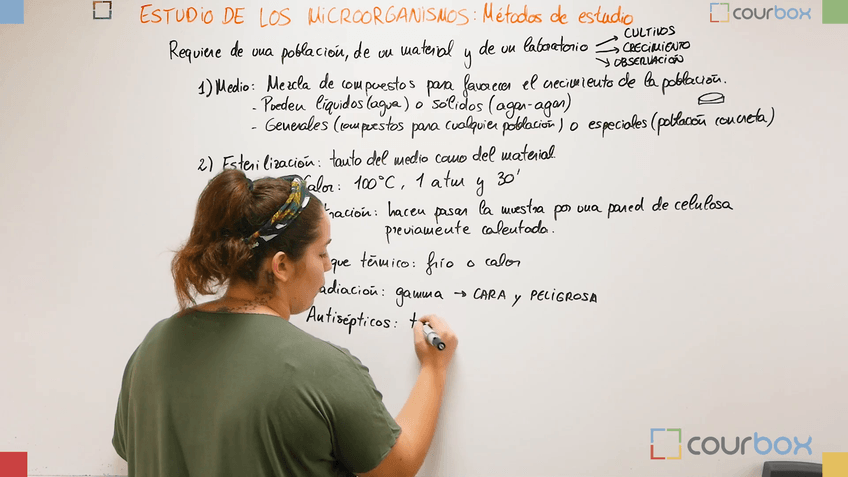 ESTUDIO DE LOS MICROORGANISMOS: Métodos de estudio
courbox
Requiere de una población, de un material y de un laboratorio → CULTIVOS
→ CRECIMIENTO
→ OBSERVACIÓN
1) Medio: Mezcla de compuestos para favorecer el crecimiento de la población.
- Pueden líquidos (agua) o sólidos (agar-agar)
- Generales (compuestos para cualquier población) o especiales (población concreta)
2) Esterilización: tanto del medio como del material
alor: 100°C, 1 atm y 30'
tración: hacen pasar la muestra por una pared de celulosa
previamente calentada.
que térmico: frío o calor
adiación: gamma → CARA y PELIGROSA
Antisépticos: t
courbox